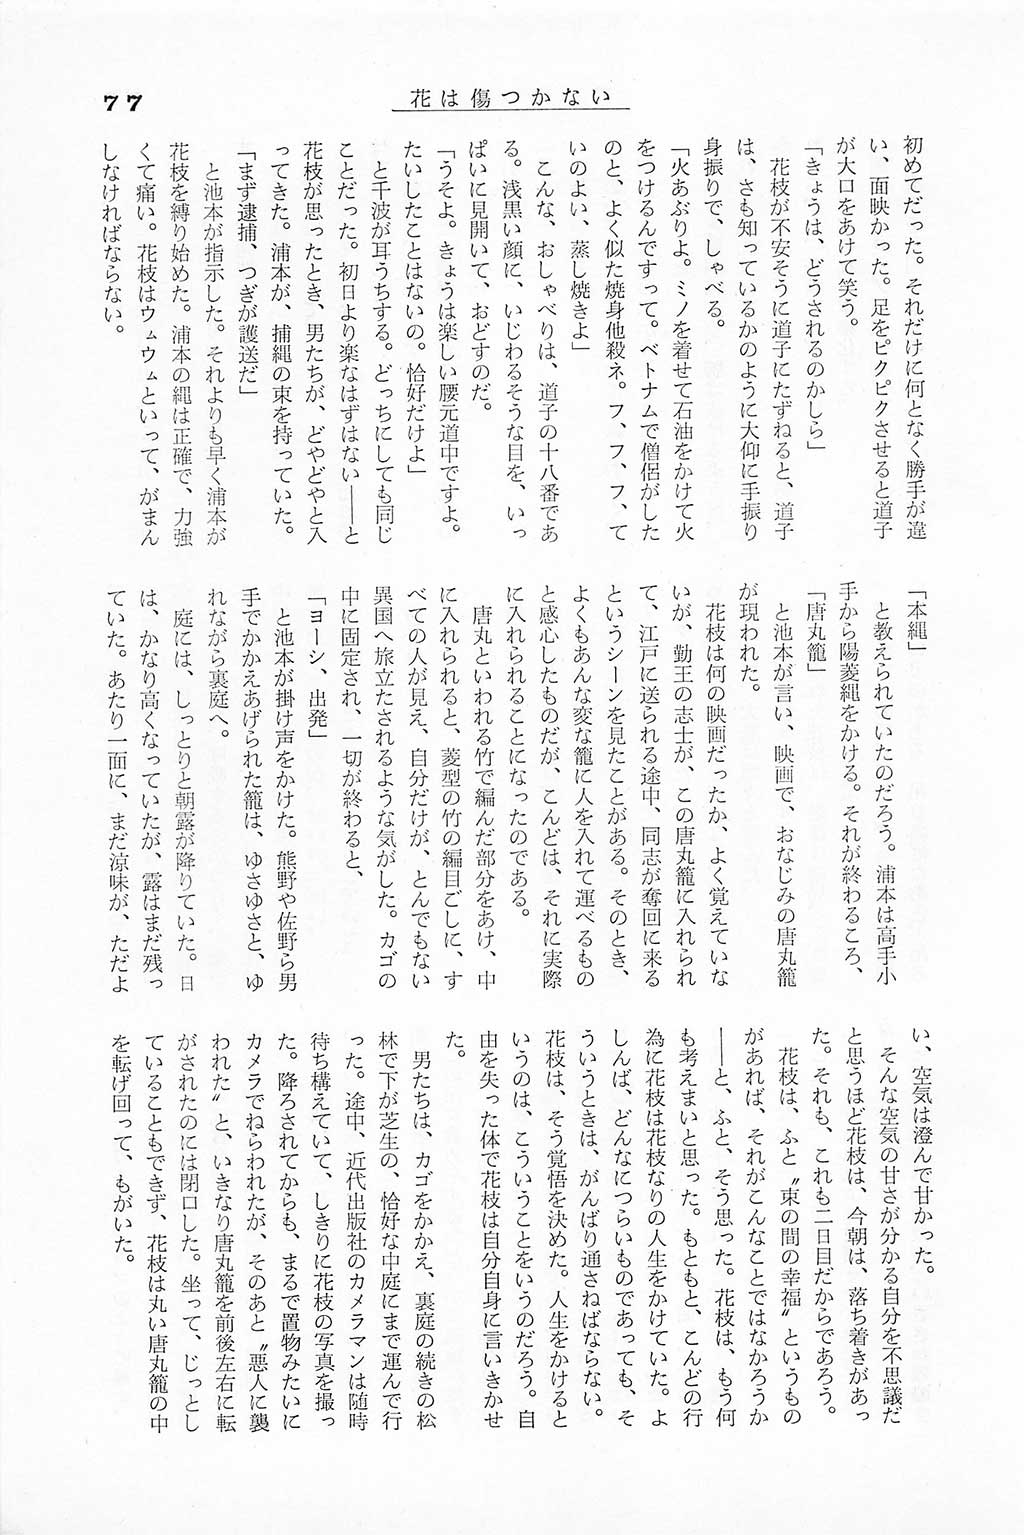 77
花は傷つかない
初めてだった。それだけに何となく勝手が違
い、面映かった。足をピクピクさせると道子
が大口をあけて笑う。
「きょうは、どうされるのかしら」
花枝が不安そうに道子にたずねると、道子
は、さも知っているかのように大仰に手振り
身振りで、しゃべる。
「火あぶりよ。ミノを着せて石油をかけて火
をつけるんですって。ベトナムで僧侶がした
のと、よく似た焼身他殺ネ。フ、フ、フ、て
いのよい、蒸し焼きよ」
こんな、おしゃべりは、道子の十八番であ
る。浅黒い顔に、いじわるそうな目を、いっ
ぱいに見開いて、おどすのだ。
「うそよ。きょうは楽しい腰元道中ですよ。
たいしたことはないの。恰好だけよ」
と千波が耳うちする。どっちにしても同じ
ことだった。初日より楽なはずはない――と
花枝が思ったとき、男たちが、どやどやと入
ってきた。浦本が、捕縄の束を持っていた。
「まず逮捕、つぎが護送だ」
と池本が指示した。それよりも早く浦本が
花枝を縛り始めた。浦本の縄は正確で、力強
くて痛い。花枝はウムウムといって、がまん
しなければならない。
「本縄」
と教えられていたのだろう。浦本は高手小
手から陽菱縄をかける。それが終わるころ、
「唐丸籠」
と池本が言い、映画で、おなじみの唐丸籠
が現われた。
花枝は何の映画だったか、よく覚えていな
いが、勤王の志士が、この唐丸籠に入れられ
て、江戸に送られる途中、同志が奪回に来る
というシーンを見たことがある。そのとき、
よくもあんな変な籠に人を入れて運べるもの
と感心したものだが、こんどは、それに実際
に入れられることになったのである。
唐丸といわれる竹で編んだ部分をあけ、中
に入れられると、菱型の竹の編目ごしに、す
べての人が見え、自分だけが、とんでもない
異国へ旅立たされるような気がした。カゴの
中に固定され、一切が終わると、
「ヨーシ、出発」
と池本が掛け声をかけた。熊野や佐野ら男
手でかかえあげられた籠は、ゆさゆさと、ゆ
れながら裏庭へ。
庭には、しっとりと朝露が降りていた。日
は、かなり高くなっていたが、露はまだ残っ
ていた。あたり一面に、まだ涼味が、ただよ
い、空気は澄んで甘かった。
そんな空気の甘さが分かる自分を不思議だ
と思うほど花枝は、今朝は、落ち着きがあっ
た。それも、これも二日目だからであろう。
花枝は、ふと〝束の間の幸福〟というもの
があれば、それがこんなことではなかろうか
――と、ふと、そう思った。花枝は、もう何
も考えまいと思った。もともと、こんどの行
為に花枝は花枝なりの人生をかけていた。よ
しんば、どんなにつらいものであっても、そ
ういうときは、がんばり通さねばならない。
花枝は、そう覚悟を決めた。人生をかけると
いうのは、こういうことをいうのだろう。自
由を失った体で花枝は自分自身に言いきかせ
た。
男たちは、カゴをかかえ、裏庭の続きの松
林で下が芝生の、恰好な中庭にまで運んで行
った。途中、近代出版社のカメラマンは随時
待ち構えていて、しきりに花枝の写真を撮っ
た。降ろされてからも、まるで置物みたいに
カメラでねらわれたが、そのあと〝悪人に襲
われた〟と、いきなり唐丸籠を前後左右に転
がされたのには閉口した。坐って、じっとし
ていることもできず、花枝は丸い唐丸籠の中
を転げ回って、もがいた。